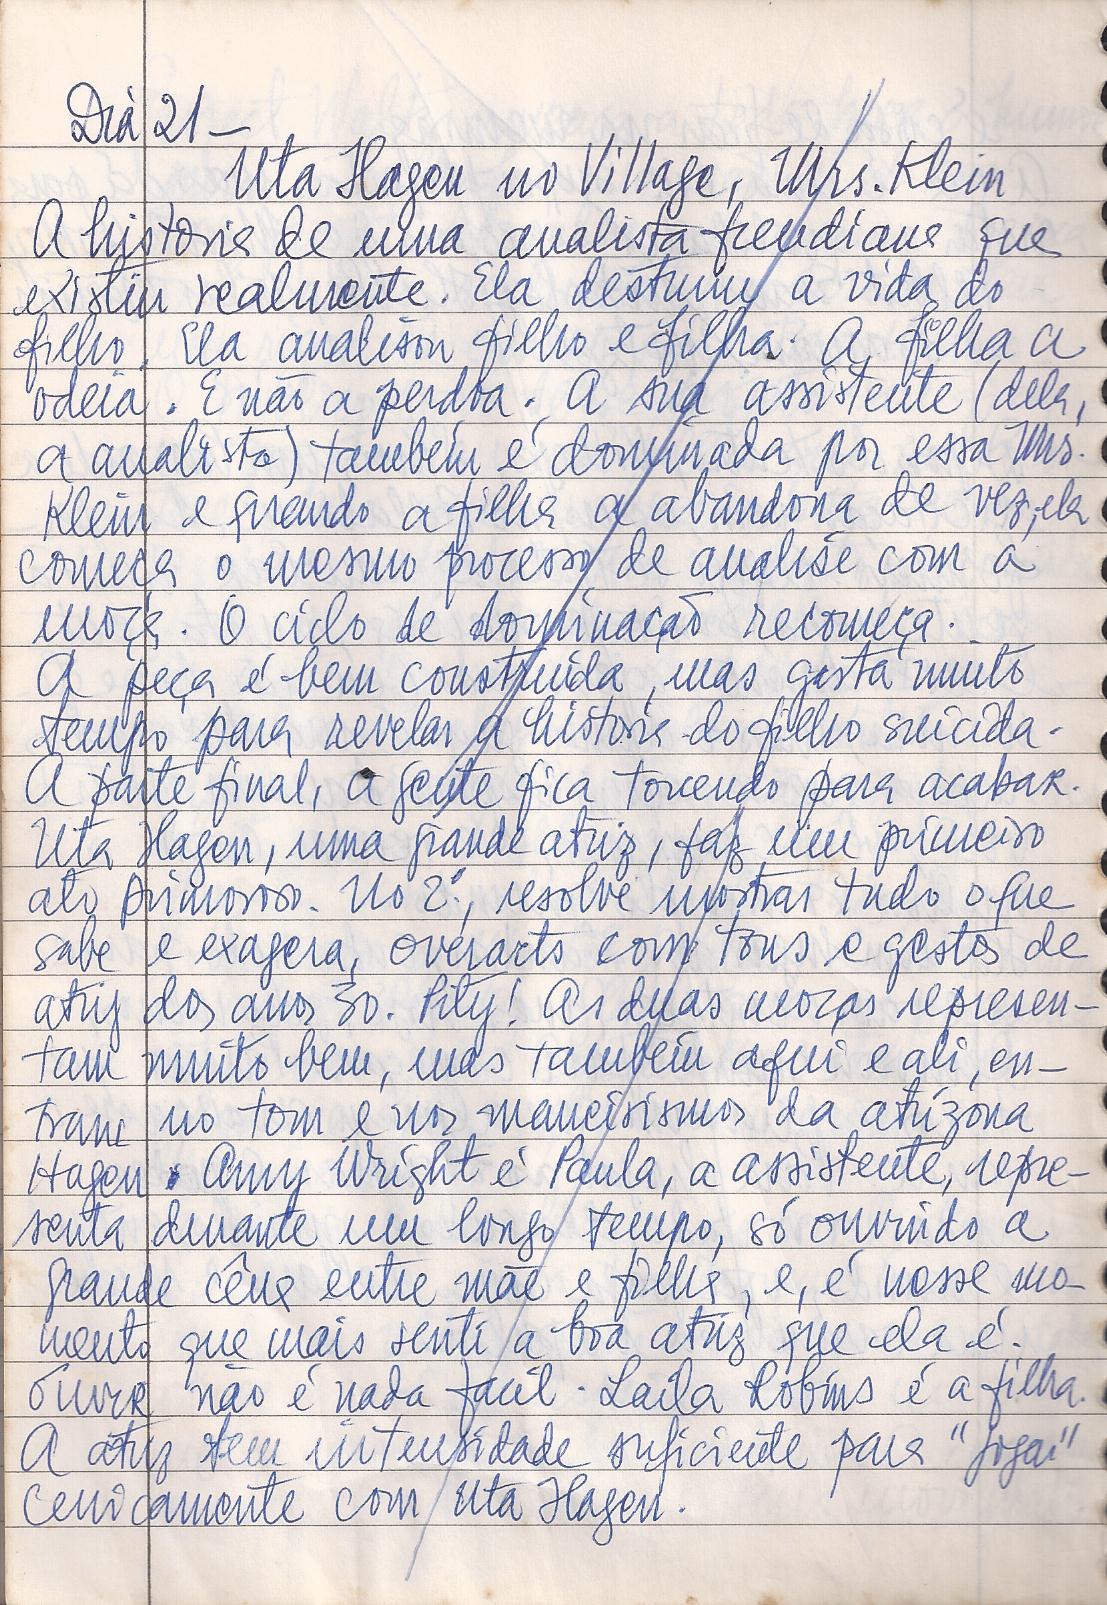 Dia 21 —
Uta Hagen no Village, Mrs. Klein
A historia de uma analista freudiana que
existiu realmente. Ela destruiu a vida do
filho. Ela analisou filho e filha. A filha a
odeia. E não a perdoa. A sua assistente (dela,
a analista) também é dominada por essa Mrs.
Klein e quando a filha a abandona de vez, ela
começa o mesmo processo de analise com a
moça. O ciclo de dominação recomeça.
A peça é bem construida, mas gasta muito
tempo para revelar a historia do filho suicida.
A parte final, a gente fica torcendo para acabar.
Uta Hagen, uma grande atriz, faz um primeiro
ato primoroso. No 2º, resolve mostrar tudo o que
sabe e exagera, overacts com tons e gestos de
atriz dos anos 30. Pity! As duas moças represen-
tam muito bem, mas também aqui e ali, en-
tram no tom e nos maneirismos da atrizona
Hagen. Amy Wright é Paula, a assistente, repre-
senta durante um longo tempo, só ouvindo a
grande cêna entre mãe e filha, e, é nesse mo-
mento que mais senti a boa atriz que ela é.
Ouvir não é nada facil. Laila Robins é a filha.
A atriz tem intensidade suficiente para "jogar"
cenicamente com Uta Hagen.